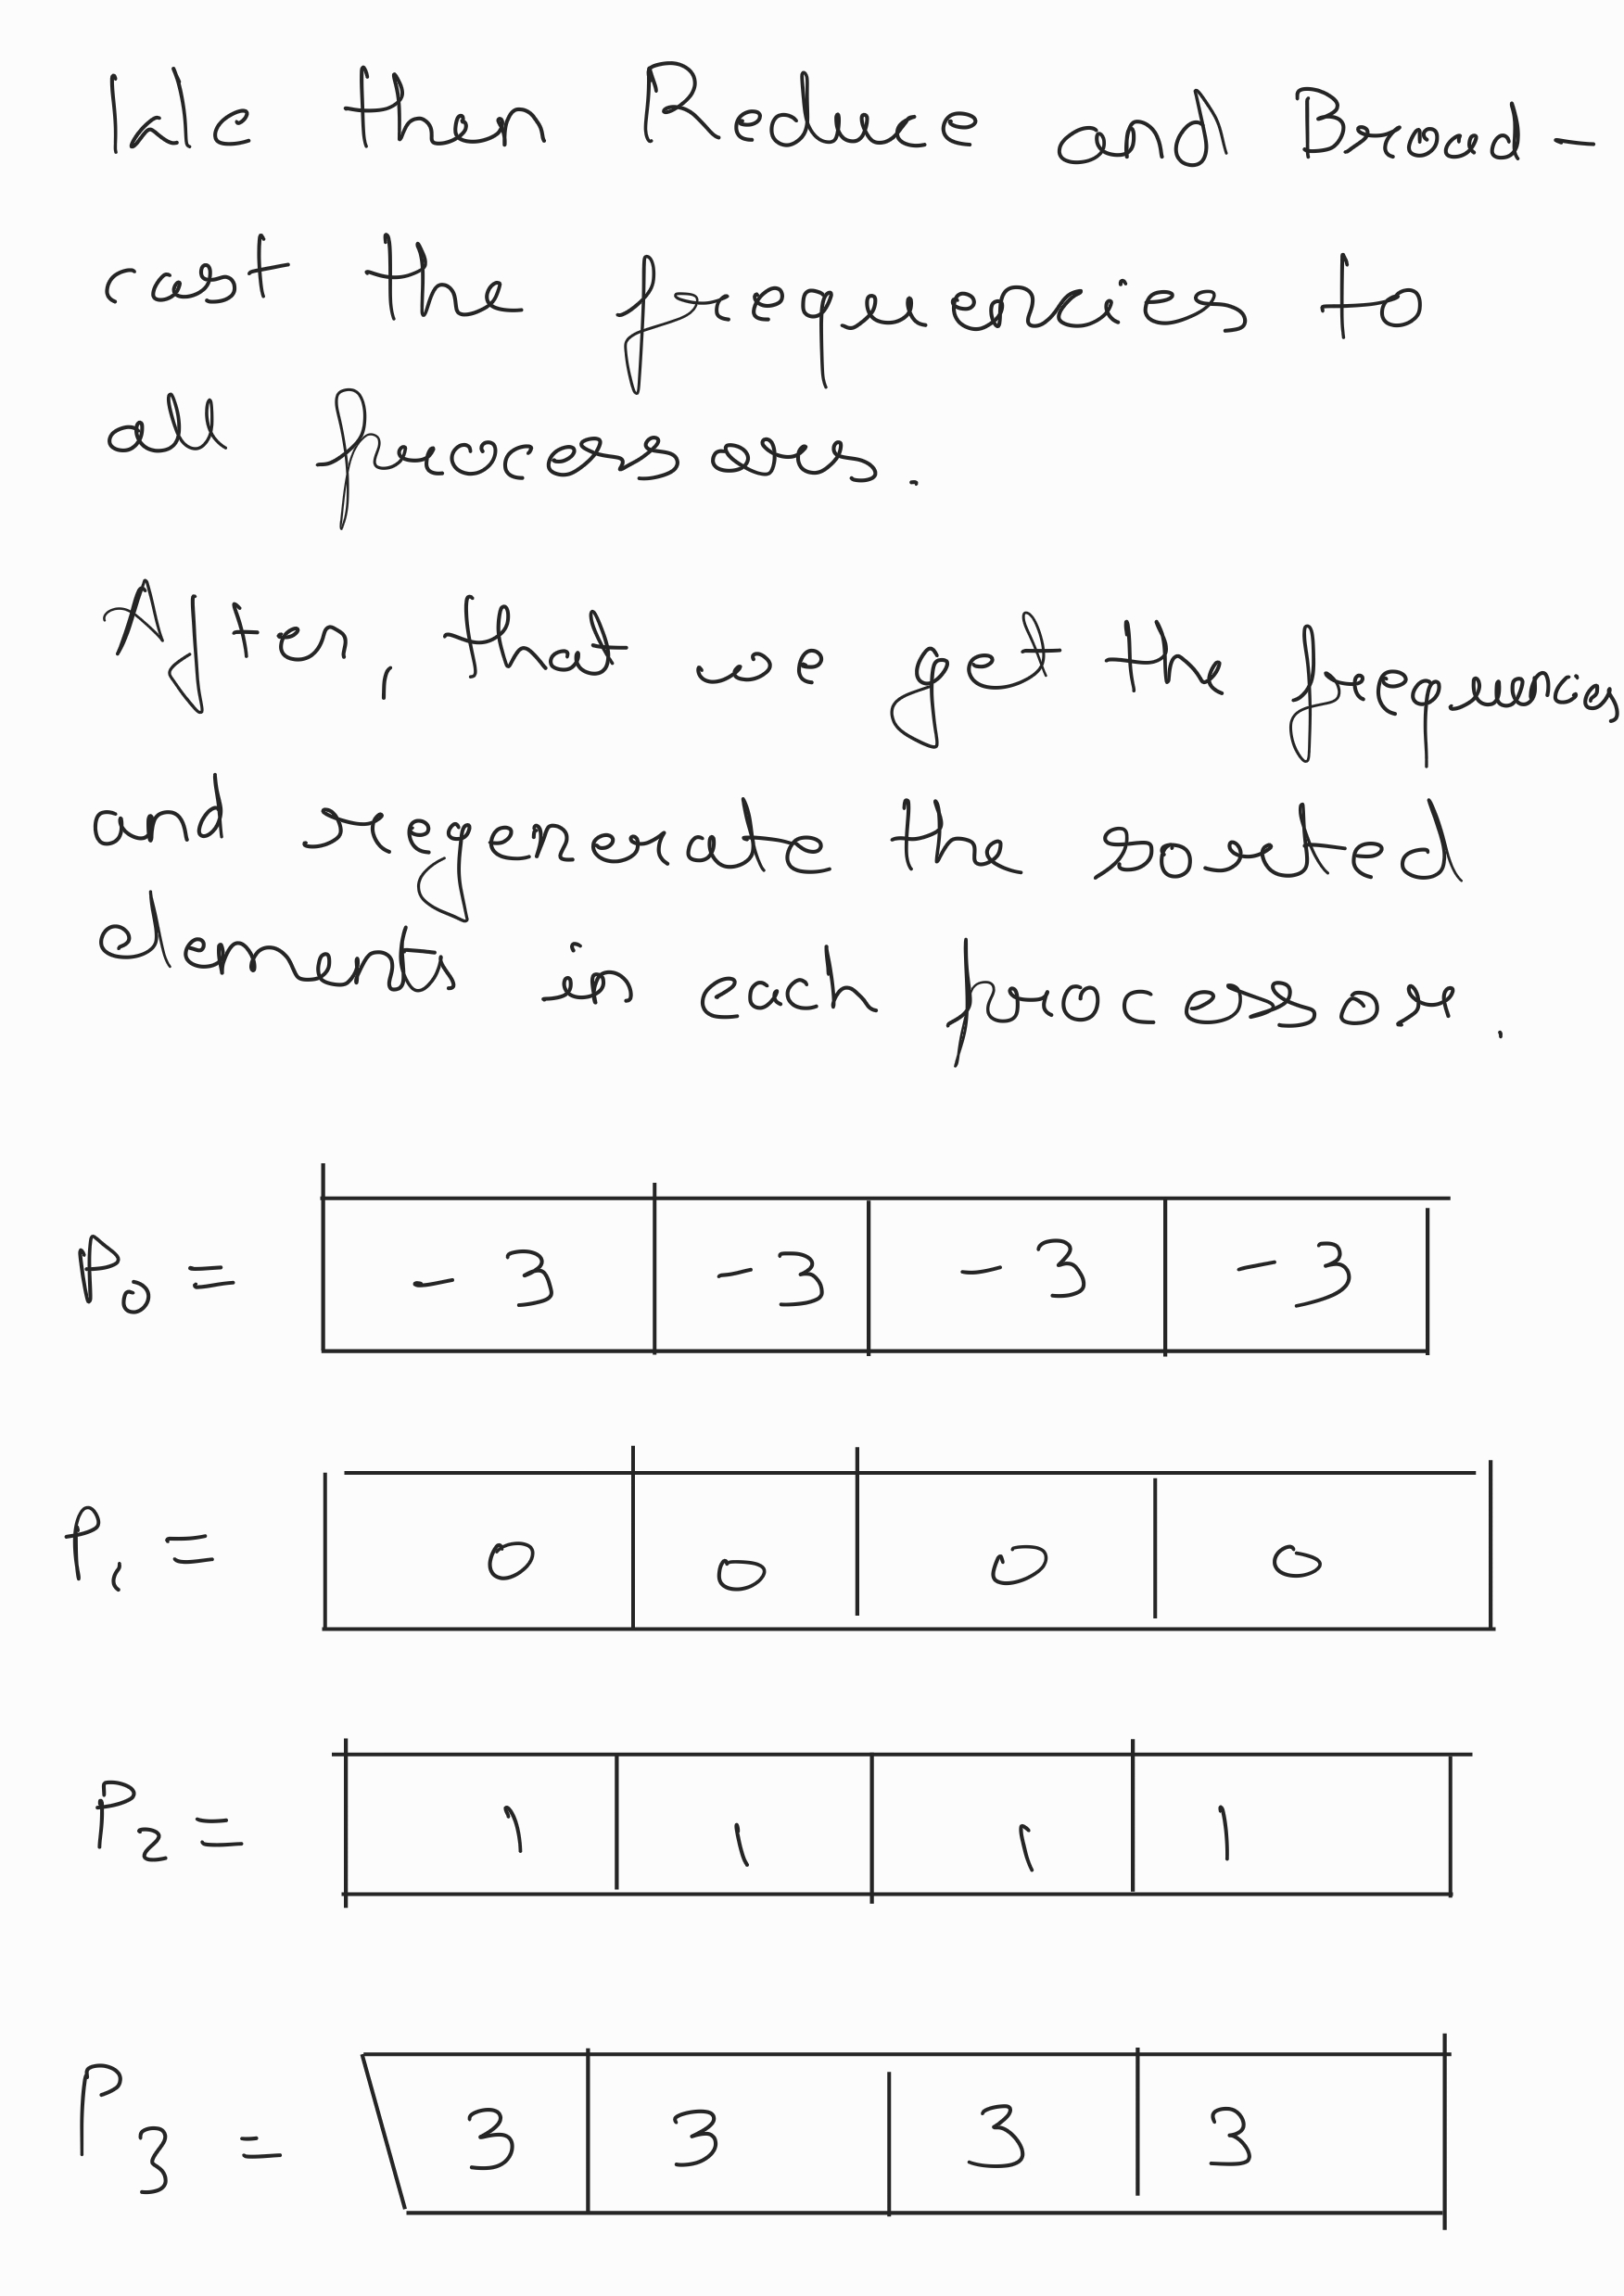 We then Reduce and Broad-
cast the frequencies to
all processors.
After, that we get the frequencies
and regenerate the sorted
elements in each processor.
P0 = -3 -3 -3 -3
P1 = 0 0 0 0
P2 = 1 1 1 1
P3 = 3 3 3 3